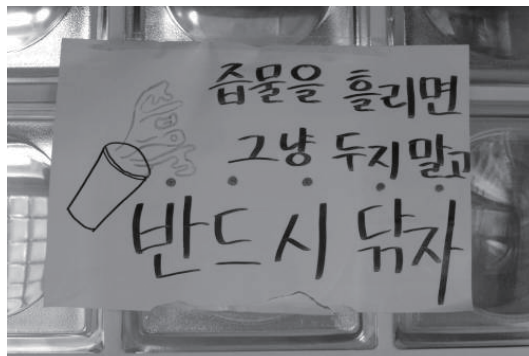 즙물을 흘리면
그냥 두지 말고
반드시 닦자